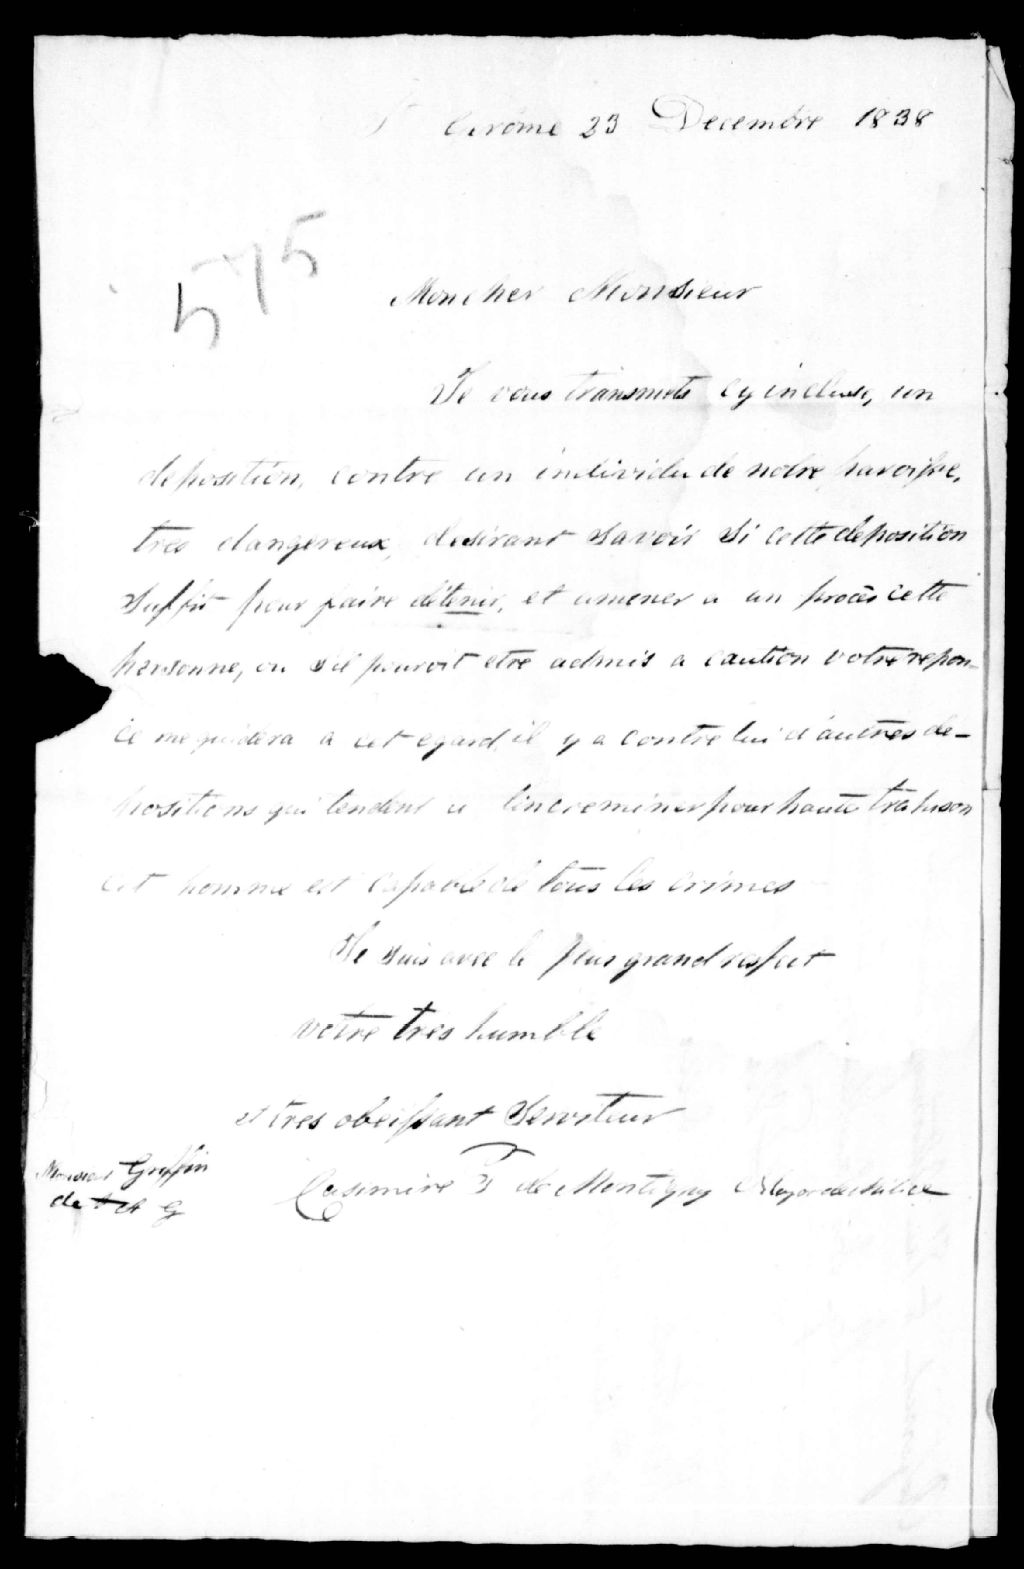 St Jerome 23 Decembre 1838
575
Mon cher Monsieur
Je vous transmets cy incluse, un
deposition, contre un individu de notre paroisse,
tres dangereux, desirant savoir si cette deposition
suffit pour faire détenir, et amener a un procès cette
personne, ou s'il pouroit etre admis a caution votre repon-
ce me guidera a cet egard, il y a contre lui d'autres de-
positions qui tendent a lincreminer pour haute trahison
cet homme est capable de tous les crimes
Je suis avec le plus grand respect
votre tres humble
et tres obeissant Serviteur
Casimire T de Montigny Major de Milice
Monsieur Griffin
de A G